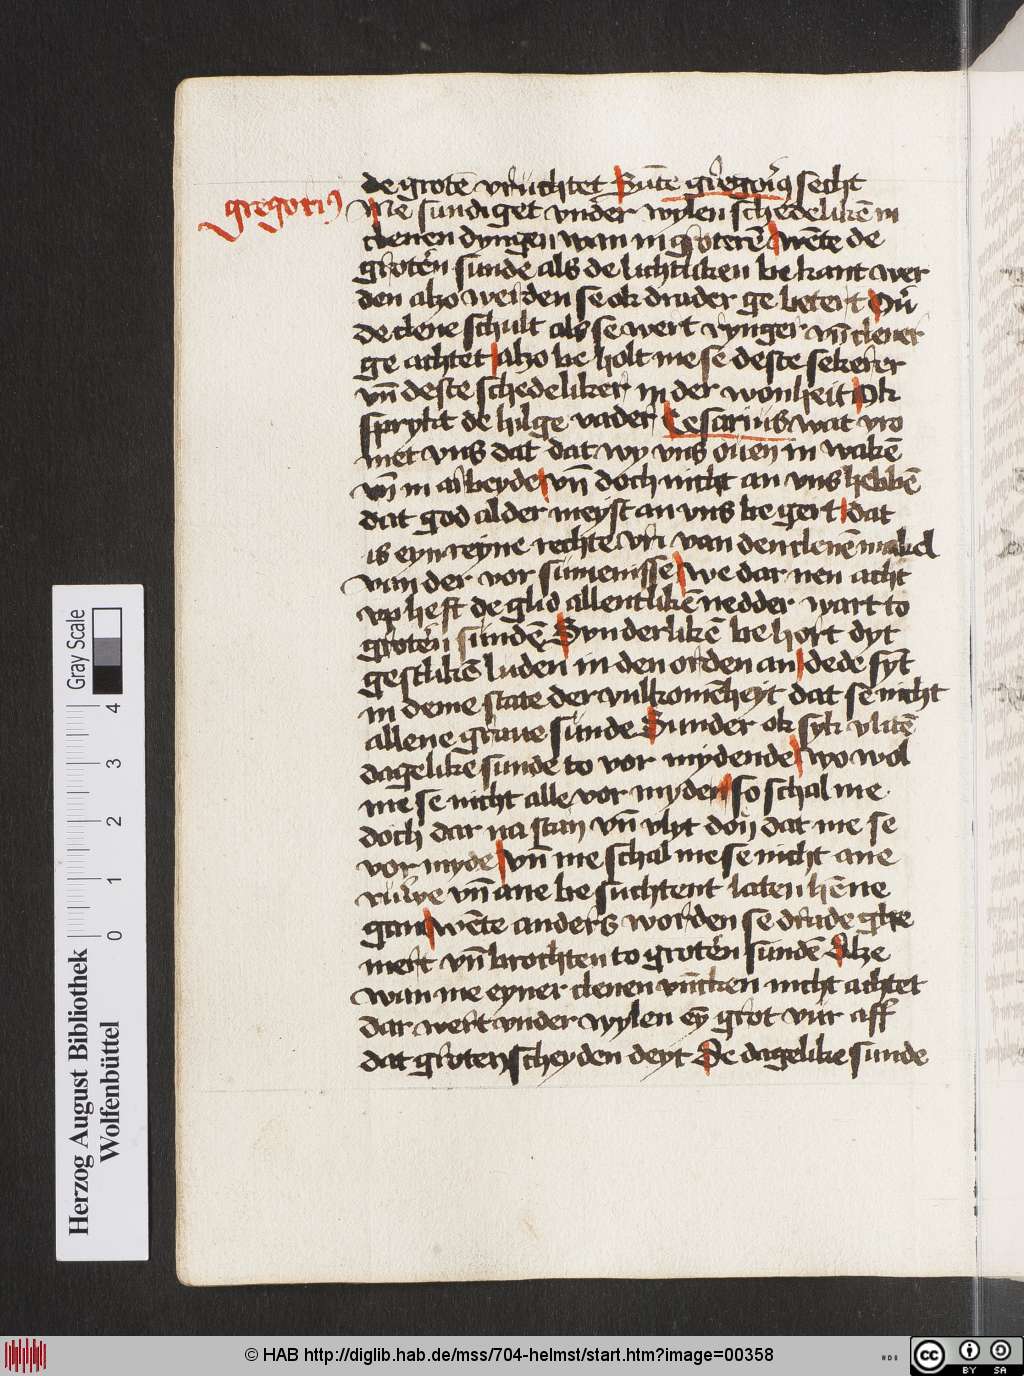 gregorius
de grotē vruchtet Sūte gregori9 secht
Me sundiget vnder wylen schedelikē in
clenen dyngen wan in groterē wēte de
groten sunde als de lichtliken be kant wer
den alzo werden se ok drader ge betert
de clene schult als se wert rynger vn̄ clener
ge achtet alzo be holt me se deste sekerer
vn̄ deste schedeliker in der wonheit Ok
sprykt de hilge vader Cesarius wat vro
met vns dat dat wy vns ouen in wakē
vn̄ in arbeyde vn̄ doch nicht an vns hebbē
dat god alder meyst an vns be gert dat
is eyn reyne rechte vri van den clenē makel
van der vor sumenisse we dar nen acht
vp heft de glid allentlikē nedder wart to
groten sundē Synderlikē be hort dyt
gestlikē luden in den orden an dede syt
in deme state der vulkomēheyt dat se nicht
allene graue sunde Sunder ok syk vlitē
dagelike sunde to vor mydende wo wol
me se nicht alle vor myden so schal me
doch dar na stan vn̄ vlyt don dat me se
vor myde vn̄ me schal me se nicht ane
ruwe vn̄ ane be suchtent laten hēne
gan wēte anders worden se drade ghe
mert vn̄ brochten to groten sundē Alze
wan me eyner clenen vūcken nicht achtet
dar wert vnder wylen ey grot vur aff
dat groten scheyden deyt De dagelike sunde
Gray Scale
0 1 2 3 4
Herzog August Bibliothek
Wolfenbüttel
© HAB http://diglib.hab.de/mss/704-helmst/start.htm?image=00358
HAB
cc
BY SA